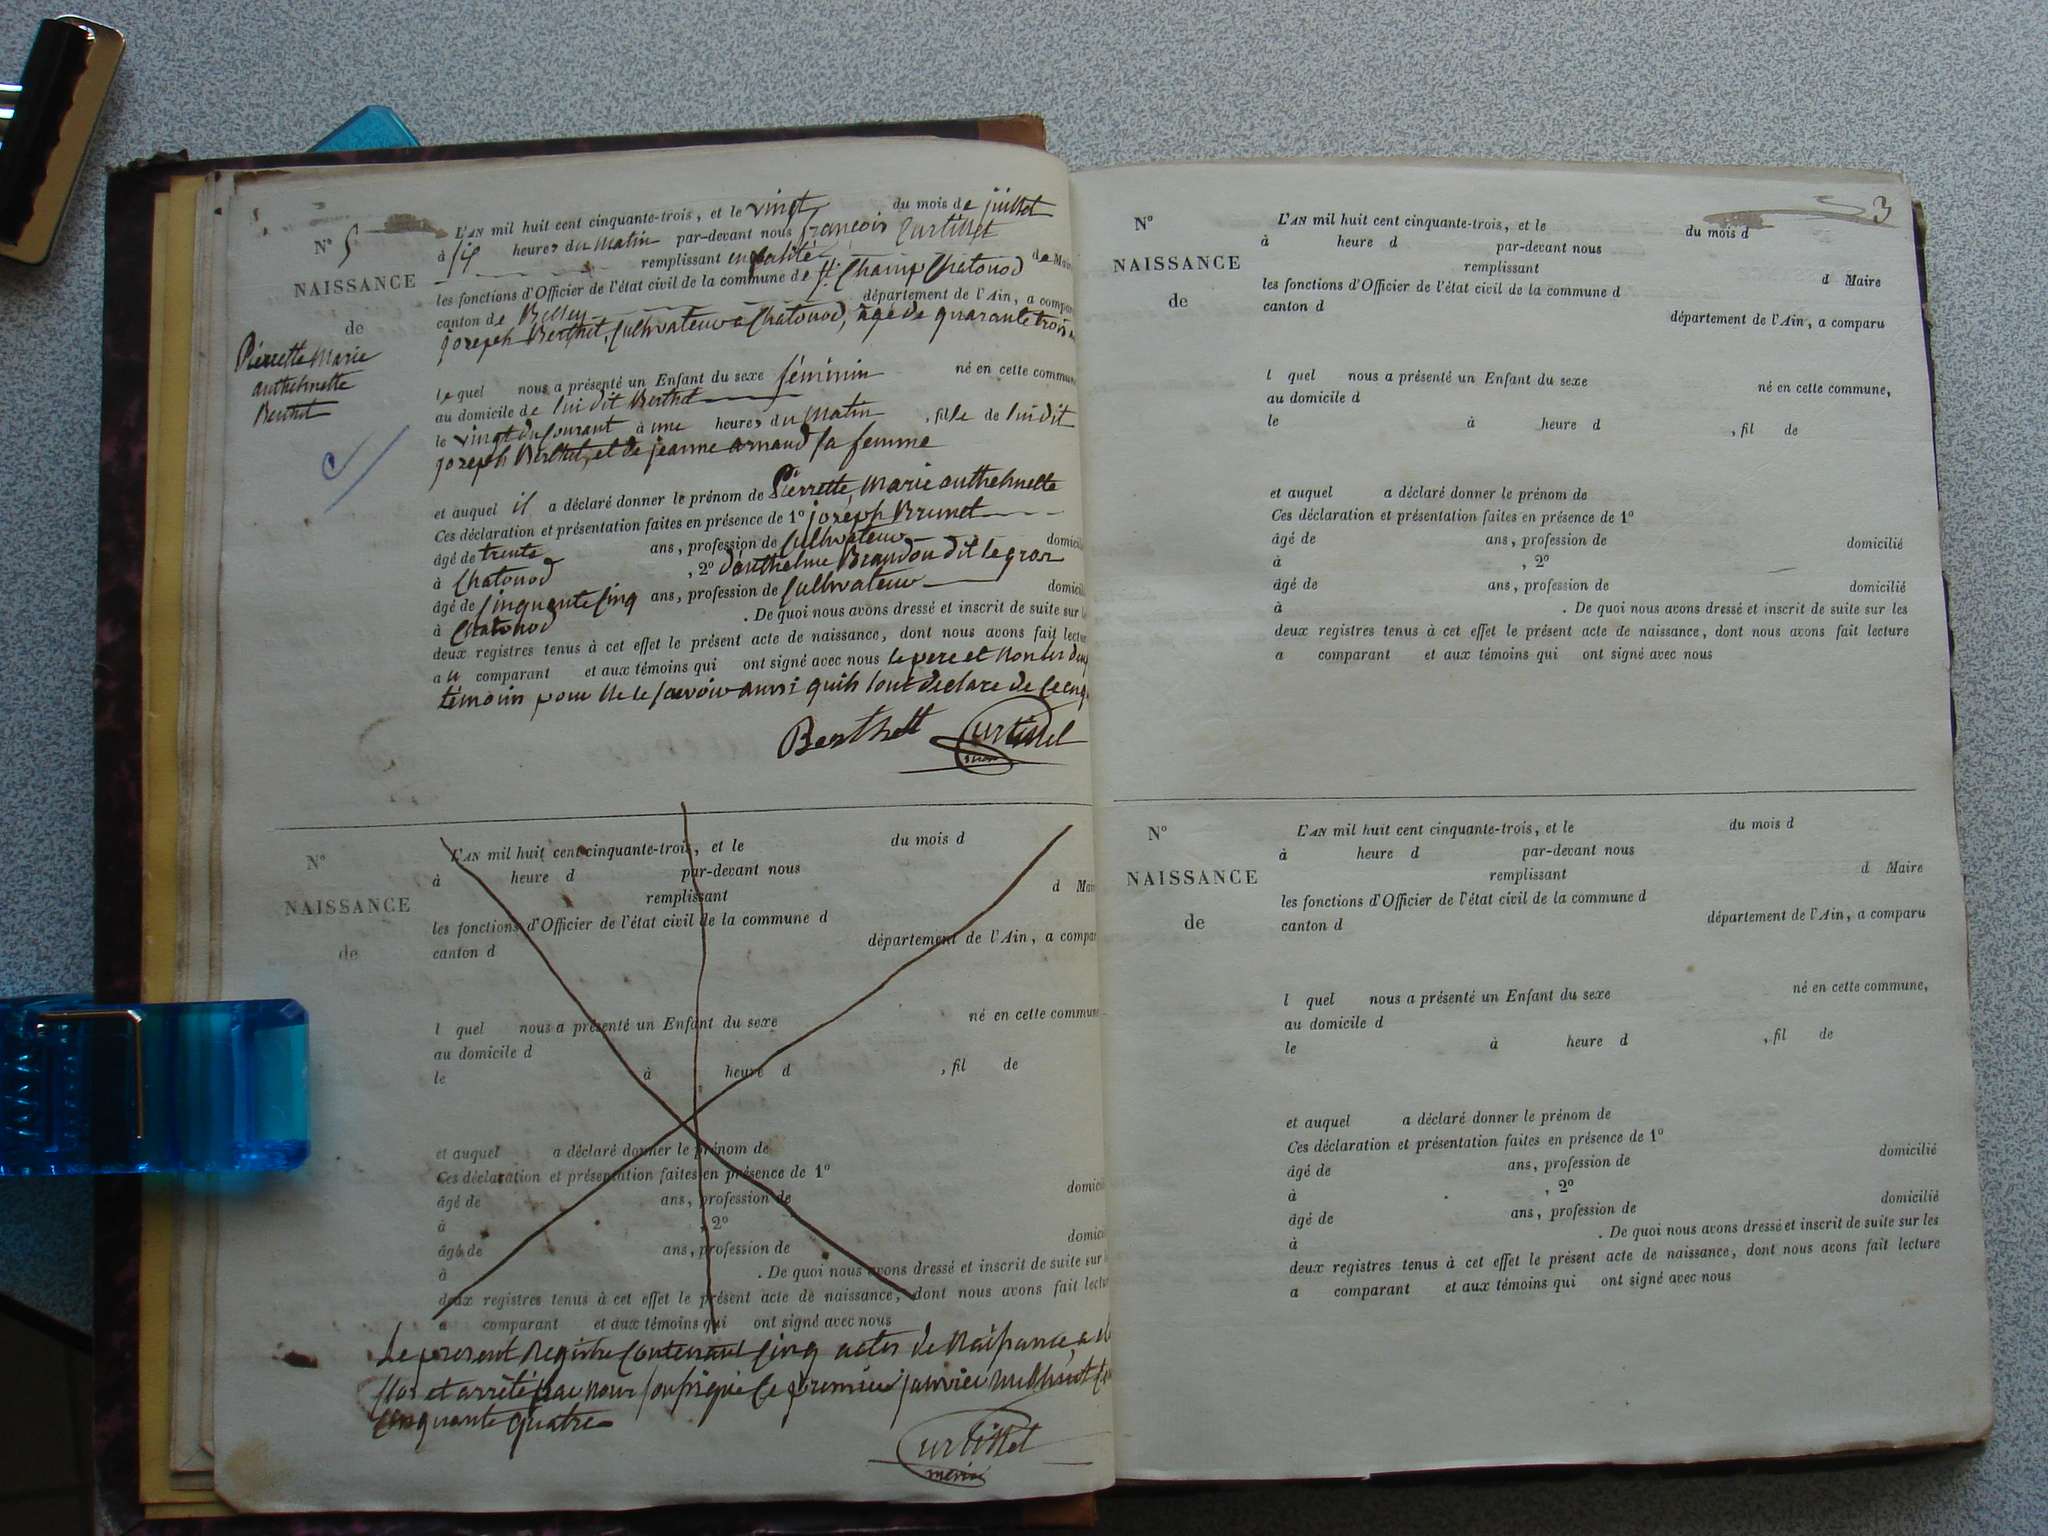 N° 5
NAISSANCE
de
Pierrette Marie
anthelmette
Berthet
L'AN mil huit cent cinquante-trois, et le vingt du mois de juillet
à six heures du matin par-devant nous françois Curtillet
remplissant en qualité de Mair
les fonctions d'Officier de l'état civil de la commune de St. Champ Chatonod
canton de Belley département de l'Ain, a compar
joseph Berthet, Cultivateur a Chatonod, âgé de quarante trois
le quel nous a présenté un Enfant du sexe féminin né en cette commune
au domicile de lui dit Berthet
le vingt du Courant à une heures du matin, fille de lui dit
joseph Berthet, et de jeanne arnaud sa femme
et auquel il a déclaré donner le prénom de Pierrette, Marie anthelmette
Ces déclaration et présentation faites en présence de 1° joseph Brunet
âgé de trente ans, profession de Cultivateur domicili
à Chatonod , 2° d'anthelme Beaudou dit legros
âgé de Cinquante Cinq ans, profession de Cultivateur domicili
à Chatonod . De quoi nous avons dressé et inscrit de suite sur le
deux registres tenus à cet effet le présent acte de naissance, dont nous avons fait lectur
au comparant et aux témoins qui ont signé avec nous le pere et non les deux
témoins pour ne le savoir ainsi quils l'ont déclaré de ce enq
Berthet Curtillet
maire
N°
NAISSANCE
de
L'AN mil huit cent cinquante-trois, et le du mois d
à heure d par-devant nous
remplissant d Mair
les fonctions d'Officier de l'état civil de la commune d
canton d département de l'Ain, a compar
l quel nous a présenté un Enfant du sexe né en cette commune
au domicile d
le à heure d , fil de
et auquel a déclaré donner le prénom de
Ces déclaration et présentation faites en présence de 1°
âgé de ans, profession de domicili
à , 2°
âgé de ans, profession de domicili
à . De quoi nous avons dressé et inscrit de suite sur
deux registres tenus à cet effet le présent acte de naissance, dont nous avons fait lectur
a comparant et aux témoins qui ont signé avec nous
Le present Registre Contenant Cinq actes de Naissance, a été
Clos et arrêté par nous soussigné le premier janvier mil huit Cent
Cinquante quatre
Curtillet
maire
3
N°
NAISSANCE
de
L'AN mil huit cent cinquante-trois, et le du mois d
à heure d par-devant nous
remplissant d Maire
les fonctions d'Officier de l'état civil de la commune d
canton d département de l'Ain, a comparu
l quel nous a présenté un Enfant du sexe né en cette commune,
au domicile d
le à heure d , fil de
et auquel a déclaré donner le prénom de
Ces déclaration et présentation faites en présence de 1°
âgé de ans, profession de domicilié
à , 2°
âgé de ans, profession de domicilié
à . De quoi nous avons dressé et inscrit de suite sur les
deux registres tenus à cet effet le présent acte de naissance, dont nous avons fait lecture
a comparant et aux témoins qui ont signé avec nous
N°
NAISSANCE
de
L'AN mil huit cent cinquante-trois, et le du mois d
à heure d par-devant nous
remplissant d Maire
les fonctions d'Officier de l'état civil de la commune d
canton d département de l'Ain, a comparu
l quel nous a présenté un Enfant du sexe né en cette commune,
au domicile d
le à heure d , fil de
et auquel a déclaré donner le prénom de
Ces déclaration et présentation faites en présence de 1°
âgé de ans, profession de domicilié
à , 2°
âgé de ans, profession de domicilié
à . De quoi nous avons dressé et inscrit de suite sur les
deux registres tenus à cet effet le présent acte de naissance, dont nous avons fait lecture
a comparant et aux témoins qui ont signé avec nous